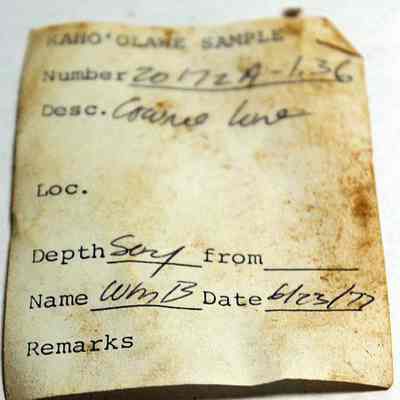 KAHO'OLAWE SAMPLE
Number 20172A-1,36
Desc. Cowrie lure
Loc.
Depth Surf from
Name WMB Date 6/23/77
Remarks